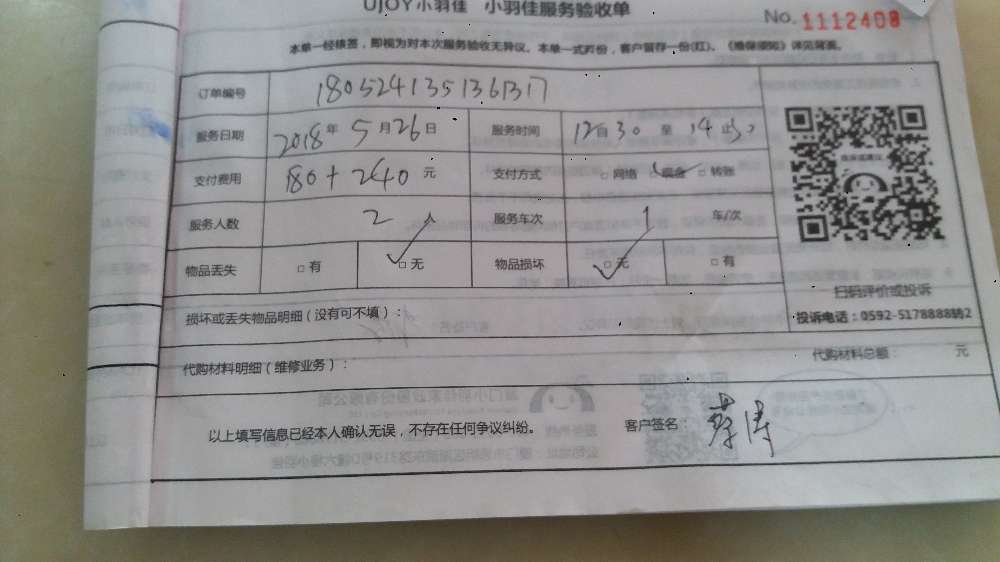 UJOY小羽佳 小羽佳服务验收单
No. 1112408
本单一经核签，即视为对本次服务验收无异议。本单一式两份，客户留存一份(红)。《维保须知》详见背面。
订单编号 1805241351361317
服务日期 2018年5月26日 服务时间 12自30至14止
支付费用 180+240元 支付方式 □网络 □现金 □转账
服务人数 2人 服务车次 1 车/次
物品丢失 □有 □无 物品损坏 □无 □有
扫码评价或投诉
损坏或丢失物品明细（没有可不填）：
投诉电话：0592-5178888转2
代购材料明细（维修业务）： 代购材料总额 元
以上填写信息已经本人确认无误，不存在任何争议纠纷。 客户签名：蔡涛